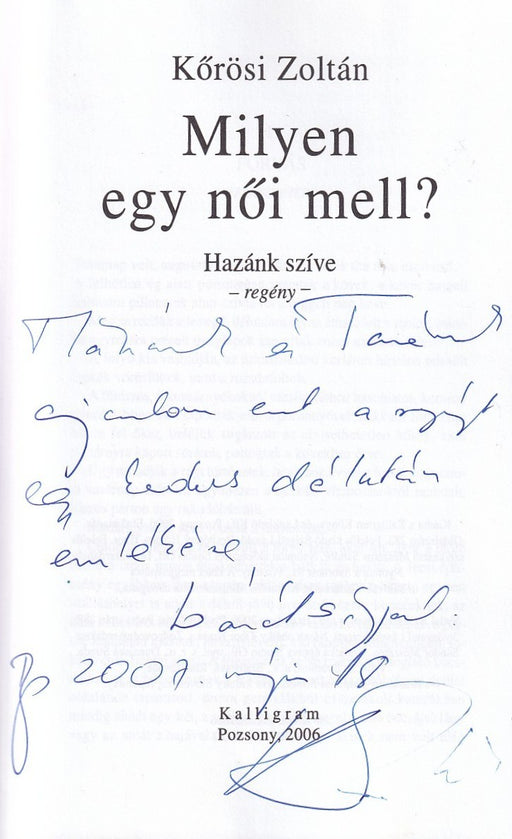 Kőrösi Zoltán
Milyen
egy női mell?
Hazánk szíve
– regény –
és
ajánlom ezt a
egy kedves délután
emlékére,
barátsággal
Bp 2007 május 18
Kalligram
Pozsony, 2006